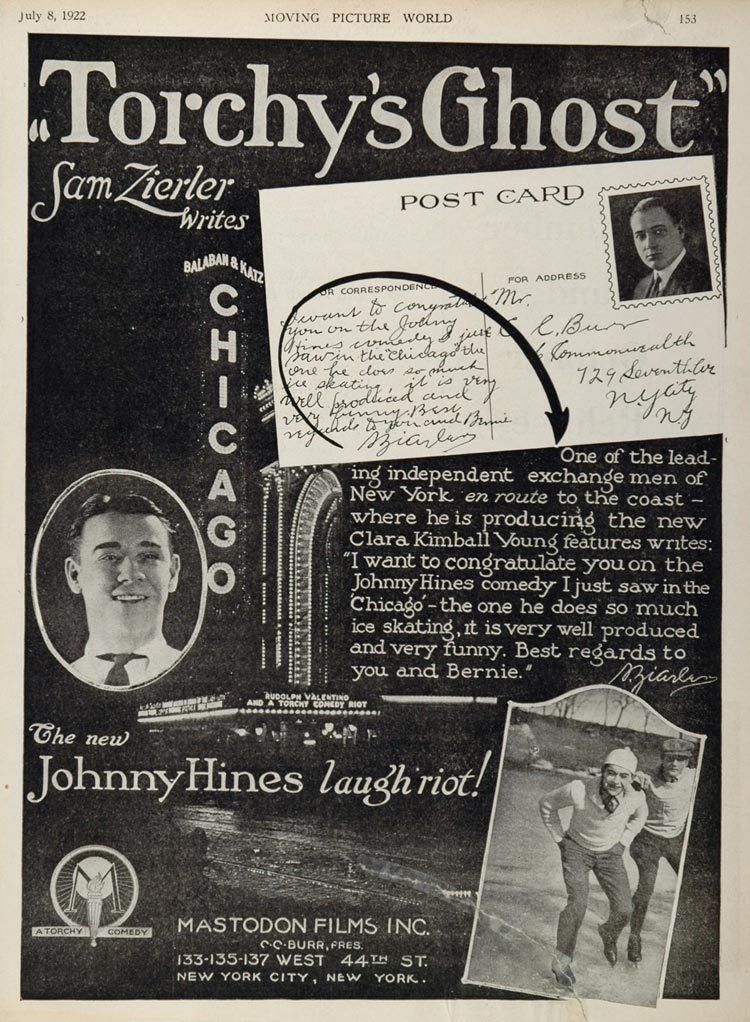 July 8, 1922 MOVING PICTURE WORLD 153
„Torchy's Ghost”
Sam Zierler
Writes
POST CARD
BALABAN & KATZ
CHICAGO
OR CORRESPONDENCE
FOR ADDRESS
I want to congratulate
you on the Johnny
Hines comedy I just
saw in the "Chicago" the
one he does so much
ice skating, it is very
well produced and
very funny. Best
regards to you and Bernie
SZierler
Mr.
C. C. Burr
% Commonwealth
729 Seventh Ave
NY City
NY
One of the lead-
ing independent exchange men of
New York en route to the coast –
where he is producing the new
Clara Kimball Young features writes:
"I want to congratulate you on the
Johnny Hines comedy I just saw in the
'Chicago' - the one he does so much
ice skating, it is very well produced
and very funny. Best regards to
you and Bernie."
SZierler
RUDOLPH VALENTINO
AND A TORCHY COMEDY RIOT
The new
Johnny Hines laugh riot!
M
A TORCHY COMEDY
MASTODON FILMS INC.
C·C·BURR, PRES.
133-135-137 WEST 44TH ST.
NEW YORK CITY, NEW YORK.